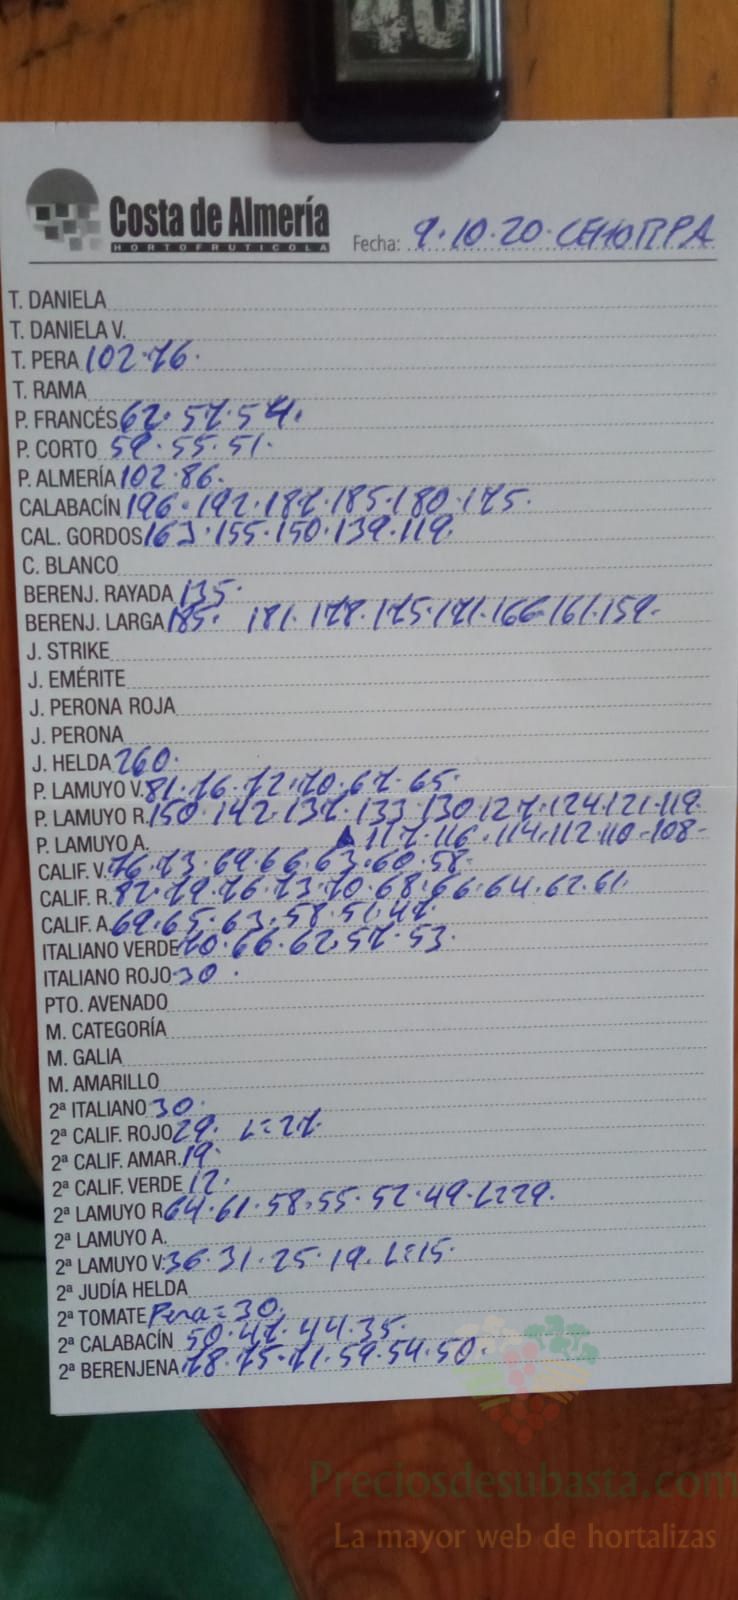 40
Costa de Almería
HORTOFRUTICOLA
Fecha: 9·10·20· CEHORPA
T. DANIELA
T. DANIELA V.
T. PERA 102·76·
T. RAMA
P. FRANCÉS 62·57·54·
P. CORTO 59·55·51·
P. ALMERÍA 102·86·
CALABACÍN 196·192·187·185·180·175·
CAL. GORDOS 163·155·150·139·119·
C. BLANCO
BERENJ. RAYADA 135·
BERENJ. LARGA 185· 181·178·175·171·166·161·159·
J. STRIKE
J. EMÉRITE
J. PERONA ROJA
J. PERONA
J. HELDA 260·
P. LAMUYO V. 81·76·72·70·67·65·
P. LAMUYO R. 150·142·137·133·130·127·124·121·119·
P. LAMUYO A. 117·116·114·112·110·108·
CALIF. V. 76·73·69·66·63·60·58·
CALIF. R. 82·79·76·73·70·68·66·64·62·61·
CALIF. A. 69·65·63·58·51·47·
ITALIANO VERDE 70·66·62·57·53·
ITALIANO ROJO 30·
PTO. AVENADO
M. CATEGORÍA
M. GALIA
M. AMARILLO
2ª ITALIANO 30·
2ª CALIF. ROJO 29· L=27·
2ª CALIF. AMAR. 19·
2ª CALIF. VERDE 12·
2ª LAMUYO R. 64·61·58·55·52·49·L=29·
2ª LAMUYO A.
2ª LAMUYO V. 36·31·25·19·L=15·
2ª JUDÍA HELDA
2ª TOMATE Pera=30·
2ª CALABACÍN 50·47·44·35·
2ª BERENJENA 78·75·71·59·54·50·
Preciosdesubasta.com
La mayor web de hortalizas